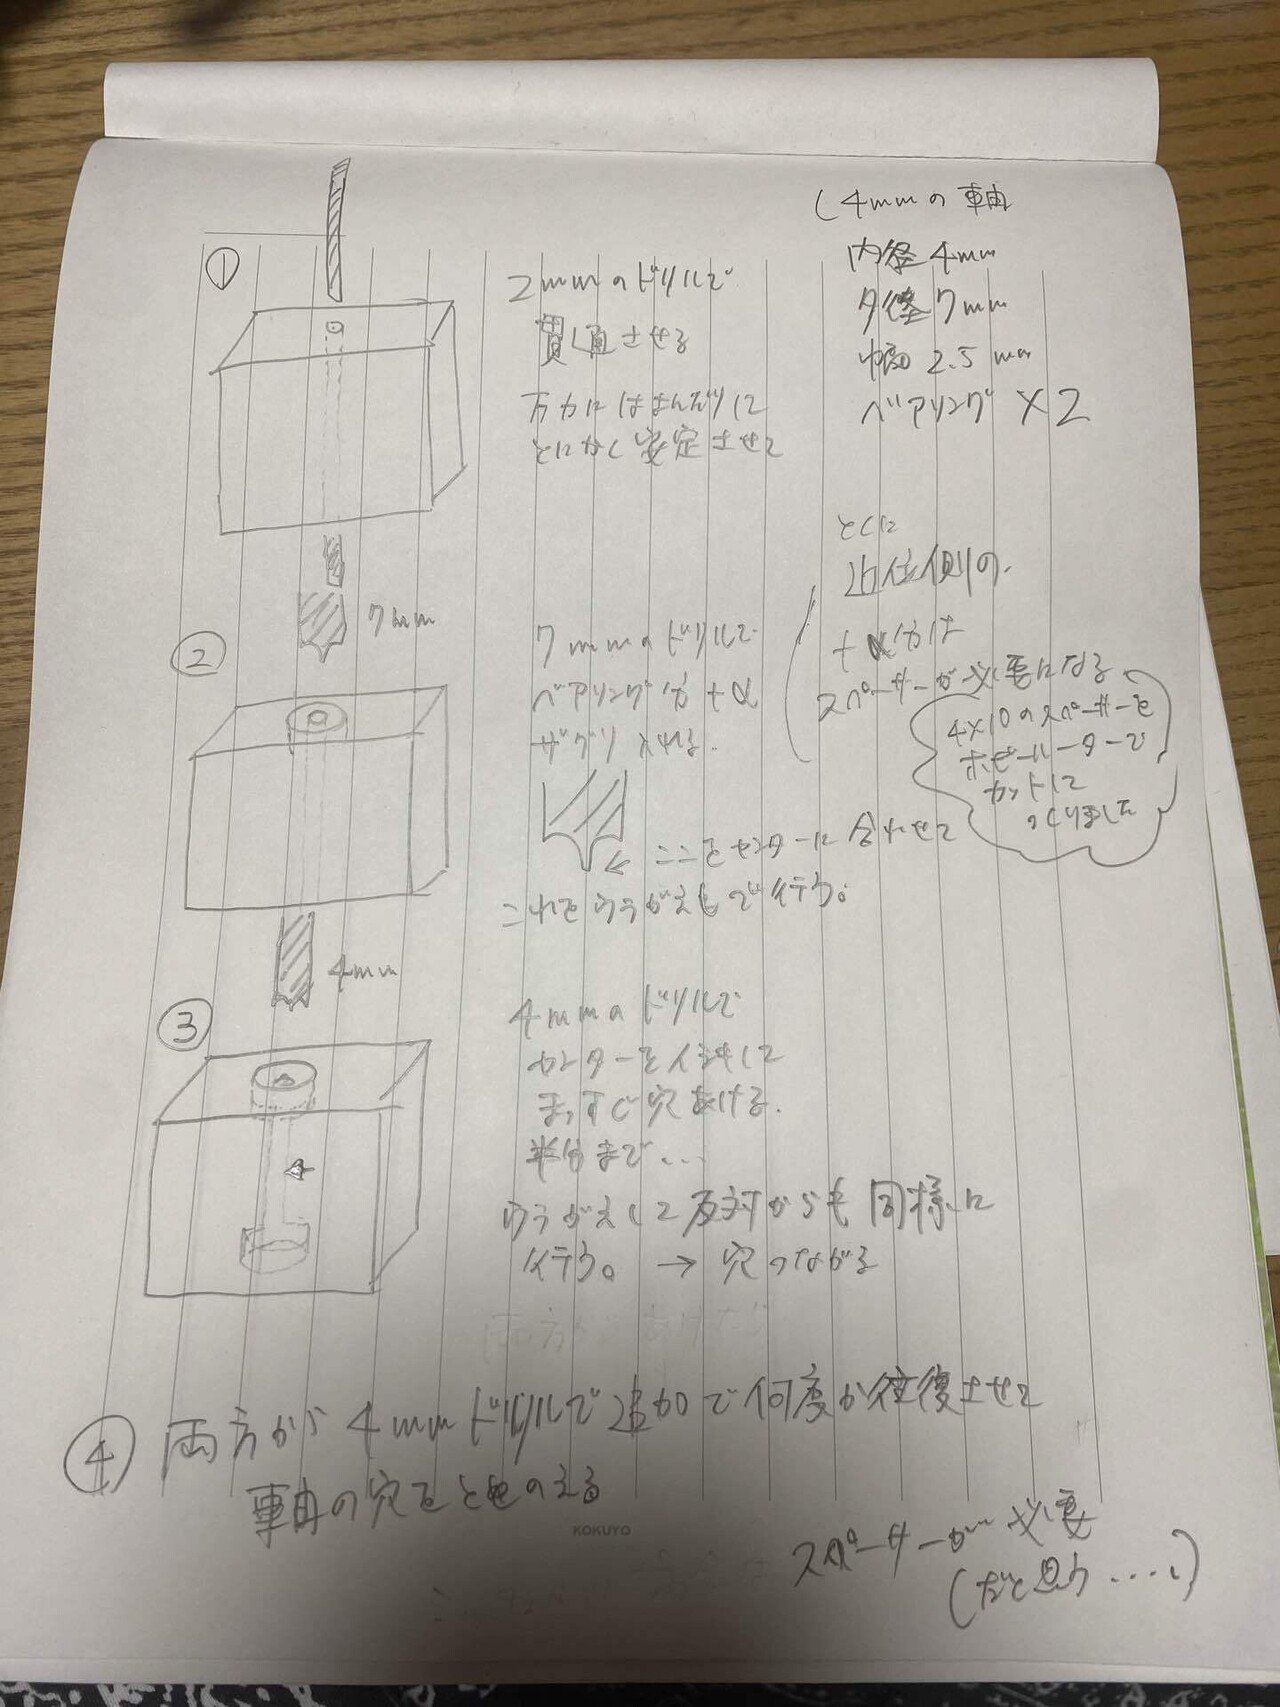 ①
2mmのドリルで
貫通させる
万力にはさんだりして
とにかく安定させて
4mmの軸
内径4mm
外径7mm
幅 2.5mm
ベアリング×2
②
7mm
7mmのドリルで
ベアリング分+α
ザグリ入れる.
←ここをセンターに合わせて
これをウラがえしで行う。
とくに
側の.
+α分は
スペーサーが必要になる
4×10のスペーサーを
ホビールーターで
カットして
つくりました
③
4mm
4mmのドリルで
センターをイシキして
まっすぐ穴あける.
半分まで...
ウラがえして反対からも同様に
行う。→穴つながる
④
両方から4mmドリルで追加で何度か往復させて
軸の穴をととのえる
スペーサーが必要
(だと思う....)
KOKUYO